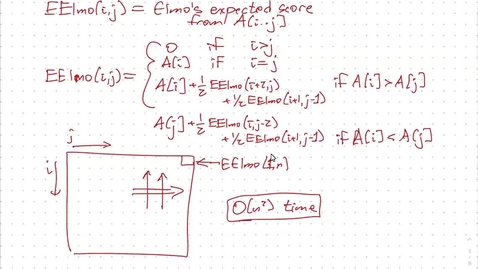 EElmo(i,j) = Elmo's expected score
from A[i..j]
0 if i>j
A[i] if i=j
EElmo(i,j) =
A[i]+½EElmo(i+2,j)
+½EElmo(i+1,j-1) if A[i]>A[j]
A[j]+½EElmo(i,j-2)
+½EElmo(i+1,j-1) if A[i]<A[j]
j
i
EElmo[1,n]
O(n²) time